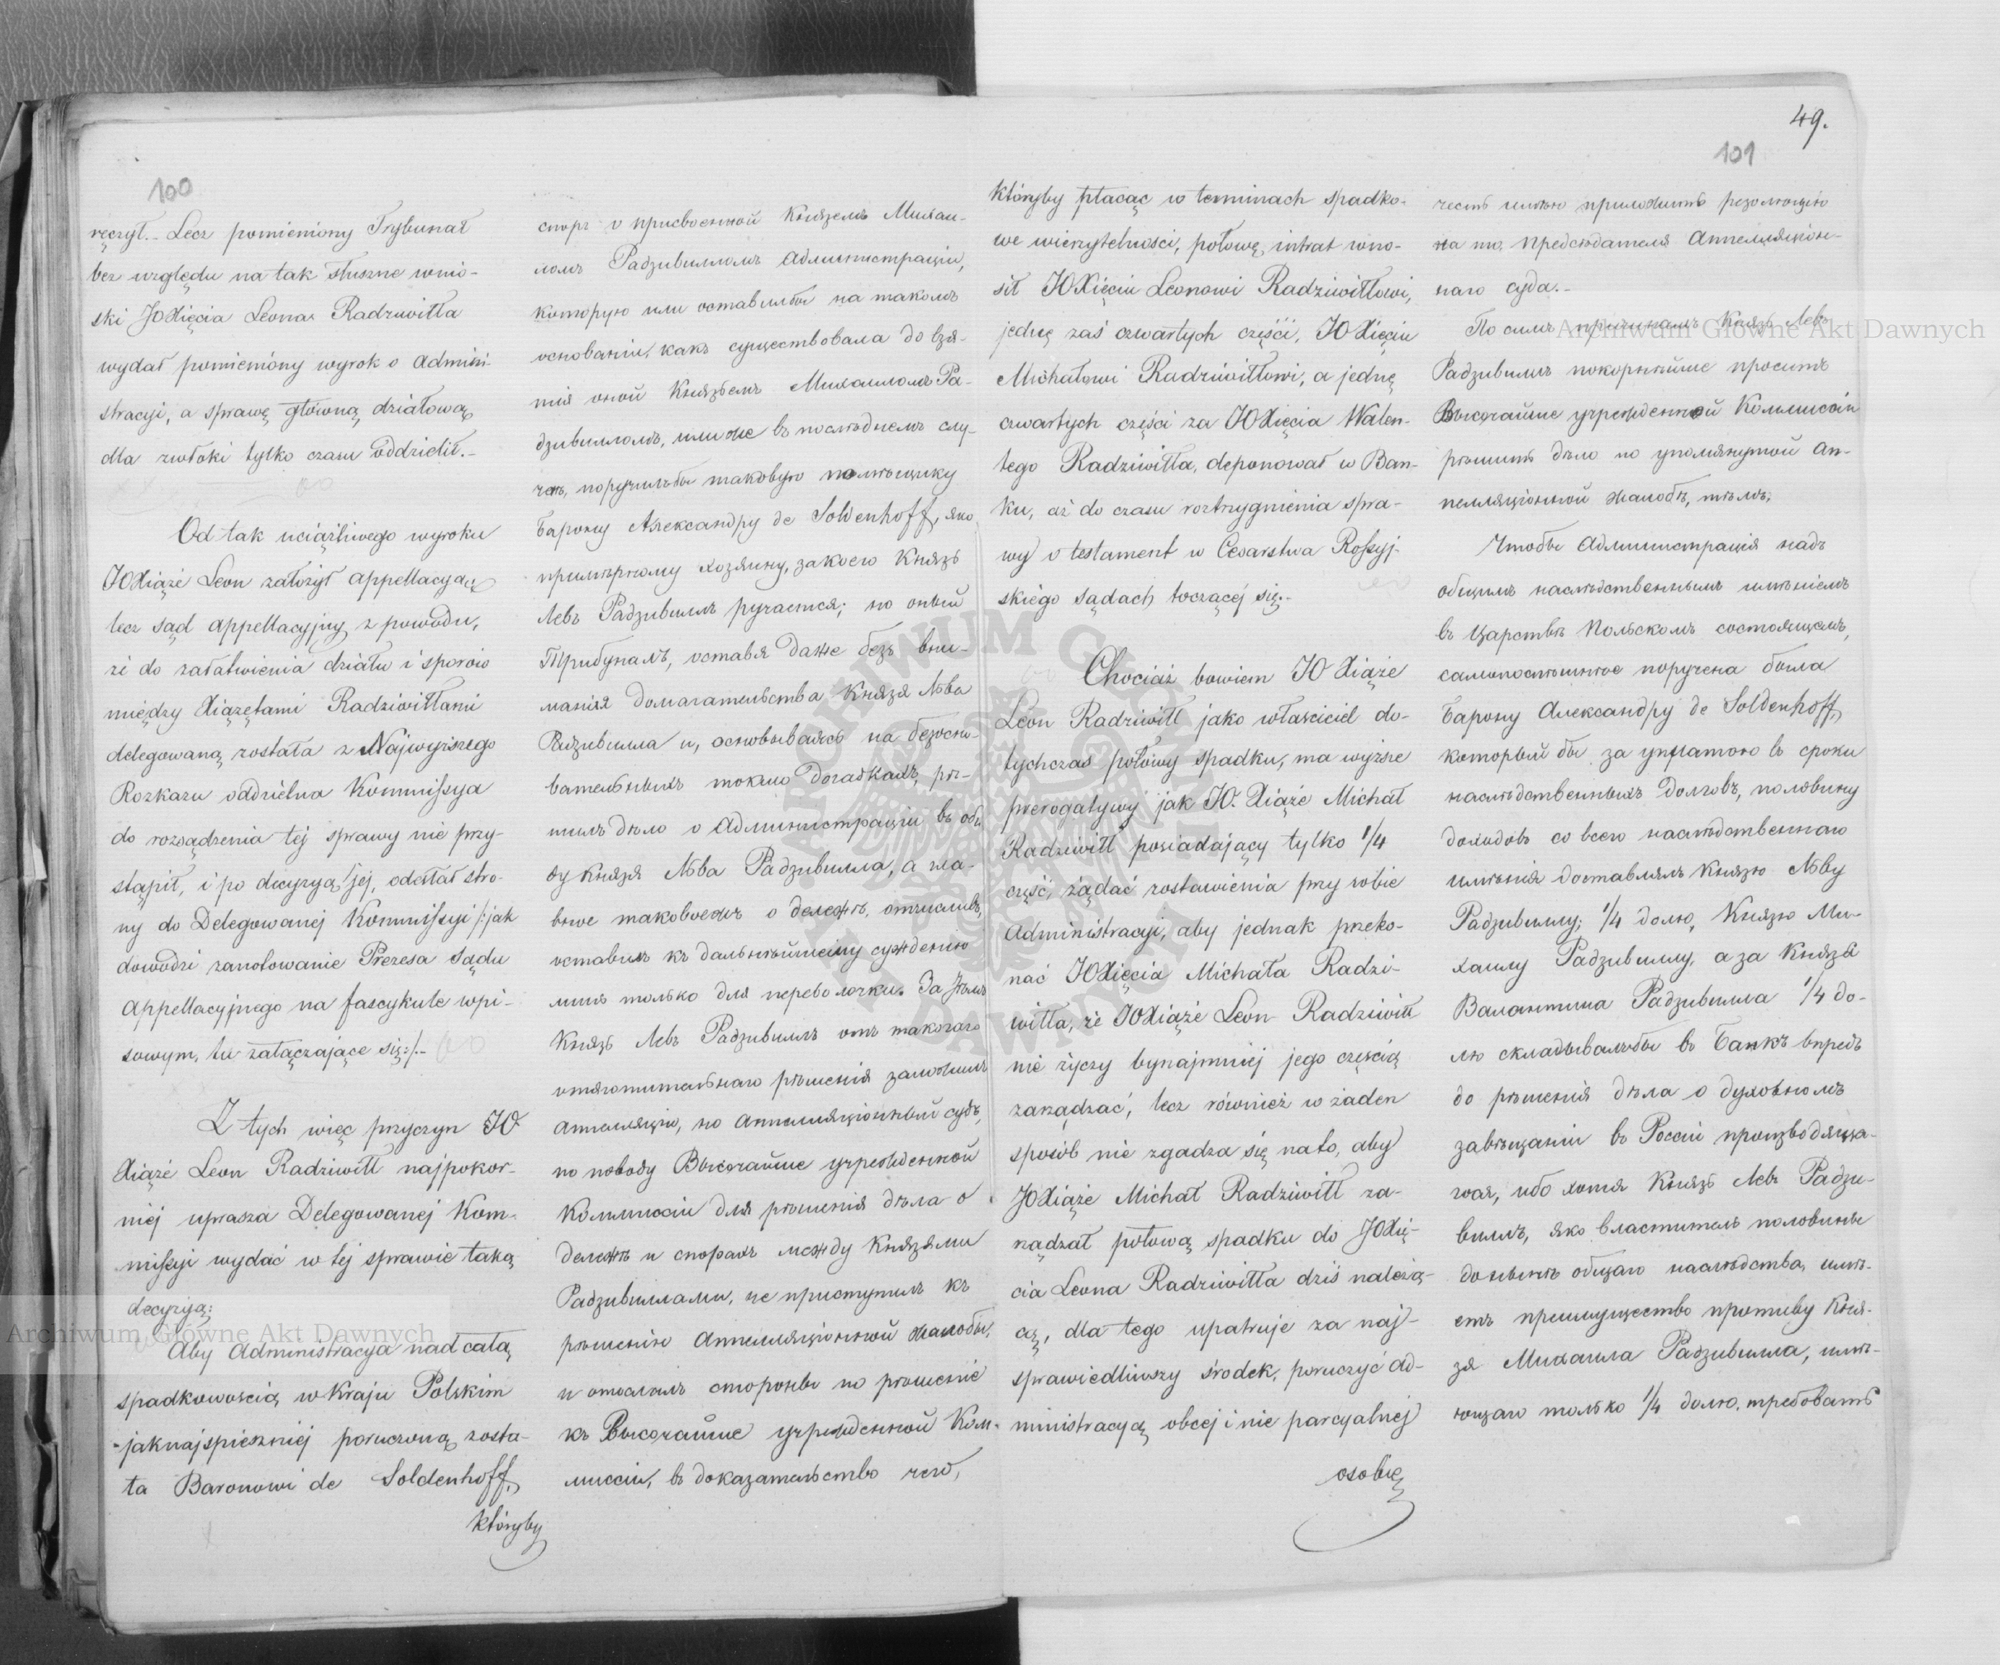 100
ręczył.- Lecz pomieniony Trybunał
bez względu na tak słuszne wnio-
ski JO Xięcia Leona Radziwiłła
wydał pomieniony wyrok o admini-
stracyi, a sprawę główną działową
dla zwłoki tylko czasu oddzielił.-
Od tak uciążliwego wyroku
JO Xiąże Leon założył appellacyą,
lecz sąd appellacyjny z powodu,
że do załatwienia działu i sporów
między Xiążętami Radziwiłłami
delegowaną została z Najwyższego
Rozkazu oddzielna Kommissya
do rozsądzenia tej sprawy nie przy-
stąpił, i po decyzyą jej, odesłał stro-
ny do Delegowanej Kommissyi /:jak
dowodzi zanotowanie Prezesa Sądu
Appellacyjnego na fascykule wpi-
sowym, tu załączające się:/.-
Z tych więc przyczyn JO
Xiąże Leon Radziwiłł najpokor-
niej uprasza Delegowanej Kom-
missyi wydać w tej sprawie taką
decyzyą:
Aby Administracya nad całą
spadkowością w Kraju Polskim
jaknajspieszniej poruczoną zosta-
ła Baronowi de Soldenhoff,
któryby
споръ о присвоенной Княземъ Михаи-
ломъ Радзивилломъ Администраціи,
которую или оставилбы на такомъ
основаніи, какъ существовала до взя-
тія оной Княземъ Михаиломъ Ра-
дзивилломъ, или же въ послѣднемъ слу-
чаѣ, поручилъбы таковую помѣщику
Барону Александру de Soldenhoff, яко
примѣрному хозяину, за коего Князь
Левъ Радзивиллъ ручается; но оный
Трибуналъ, оставя даже безъ вни-
манія домагательства Князя Льва
Радзивилла и, основываясь на безосно-
вательныхъ токмо догадкахъ, рѣ-
шилъ дѣло о Администраціи въ оби-
ду Князя Льва Радзивилла, а гла-
вное таковоежъ о дележѣ, отчисливъ,
оставилъ къ дальнѣйшему сужденію
лишь только для переволочки. За тѣмъ
Князь Левъ Радзивиллъ отъ таковаго
отяготительнаго рѣшенія заложилъ
аппелляцію, но Аппелляціонный судъ,
по поводу Высочайше учрежденной
Коммиссіи для рѣшенія дѣла о
дележѣ и спорахъ между Князьями
Радзивиллами, не приступилъ къ
рѣшенію Аппелляціонной жалобы,
и отослалъ стороны по рѣшеніе
къ Высочайше учрежденной Ком-
миссіи, въ доказательство чего,
49.
101
Któryby płacąc w terminach spadko-
we wierzytelności, połowę intrat wno-
sił JO Xięciu Leonowi Radziwiłłowi,
jednę zaś czwartych części, JO Xięciu
Michałowi Radziwiłłowi, a jednę
czwartych części za JO Xięcia Walen-
tego Radziwiłła, deponował w Ban-
ku, aż do czasu roztrzygnienia spra-
wy o testament w Cesarstwa Rossyj-
skiego Sądach toczącej się.-
Chociaż bowiem JO Xiąże
Leon Radziwiłł jako właściciel do-
tychczas połowy spadku, ma wyższe
prerogatywy jak JO. Xiąże Michał
Radziwiłł posiadający tylko 1/4
część, żądać zostawienia przy sobie
Administracyi, aby jednak przeko-
nać JO Xięcia Michała Radzi-
wiłła, że JO Xiąże Leon Radziwiłł
nie życzy bynajmniej jego częścią
zarządzać, lecz również w żaden
sposób nie zgadza się na to, aby
JO Xiąże Michał Radziwiłł za-
rządzał połową spadku do JO Xię-
cia Leona Radziwiłła dziś należą-
cą, dla tego upatruje za naj-
sprawiedliwszy środek, poruczyć ad-
ministracyą obcej i nie parcyalnej
osobie,
честь имѣю приложить резолюцію
на то, предсѣдателя Аппелляціон-
наго суда.-
По симъ причинамъ Князь Левъ
Радзивиллъ покорнѣйше проситъ
Высочайше учрежденной Коммиссіи
рѣшить дѣло по упомянутой Ап-
пелляціонной жалобѣ, тѣмъ:
Чтобы Администрація надъ
общимъ наслѣдственнымъ имѣніемъ
въ Царствѣ Польскомъ состоящемъ,
самопоспѣшнѣе поручена была
Барону Александру de Soldenhoff,
который бы за уплатою въ сроки
наслѣдственныхъ долговъ, половину
доходовъ со всего наслѣдственнаго
имѣнія доставлялъ Князю Льву
Радзивиллу; 1/4 долю, Князю Ми-
хаилу Радзивиллу, а за Князя
Валантина Радзивилла 1/4 до-
лю складывалъбы въ Банкъ впредь
до рѣшенія дѣла о духовномъ
завѣщаніи въ Россіи производяща-
гося, ибо хотя Князь Левъ Радзи-
виллъ, яко властитель половины
донынѣ общаго наслѣдства, имѣ-
етъ преимущество противу Кня-
зя Михаила Радзивилла, имѣ-
ющаго только 1/4 долю, требовать
Archiwum Główne Akt Dawnych
Archiwum Główne Akt Dawnych
ARCHIWUM GŁÓWNE AKT DAWNYCH